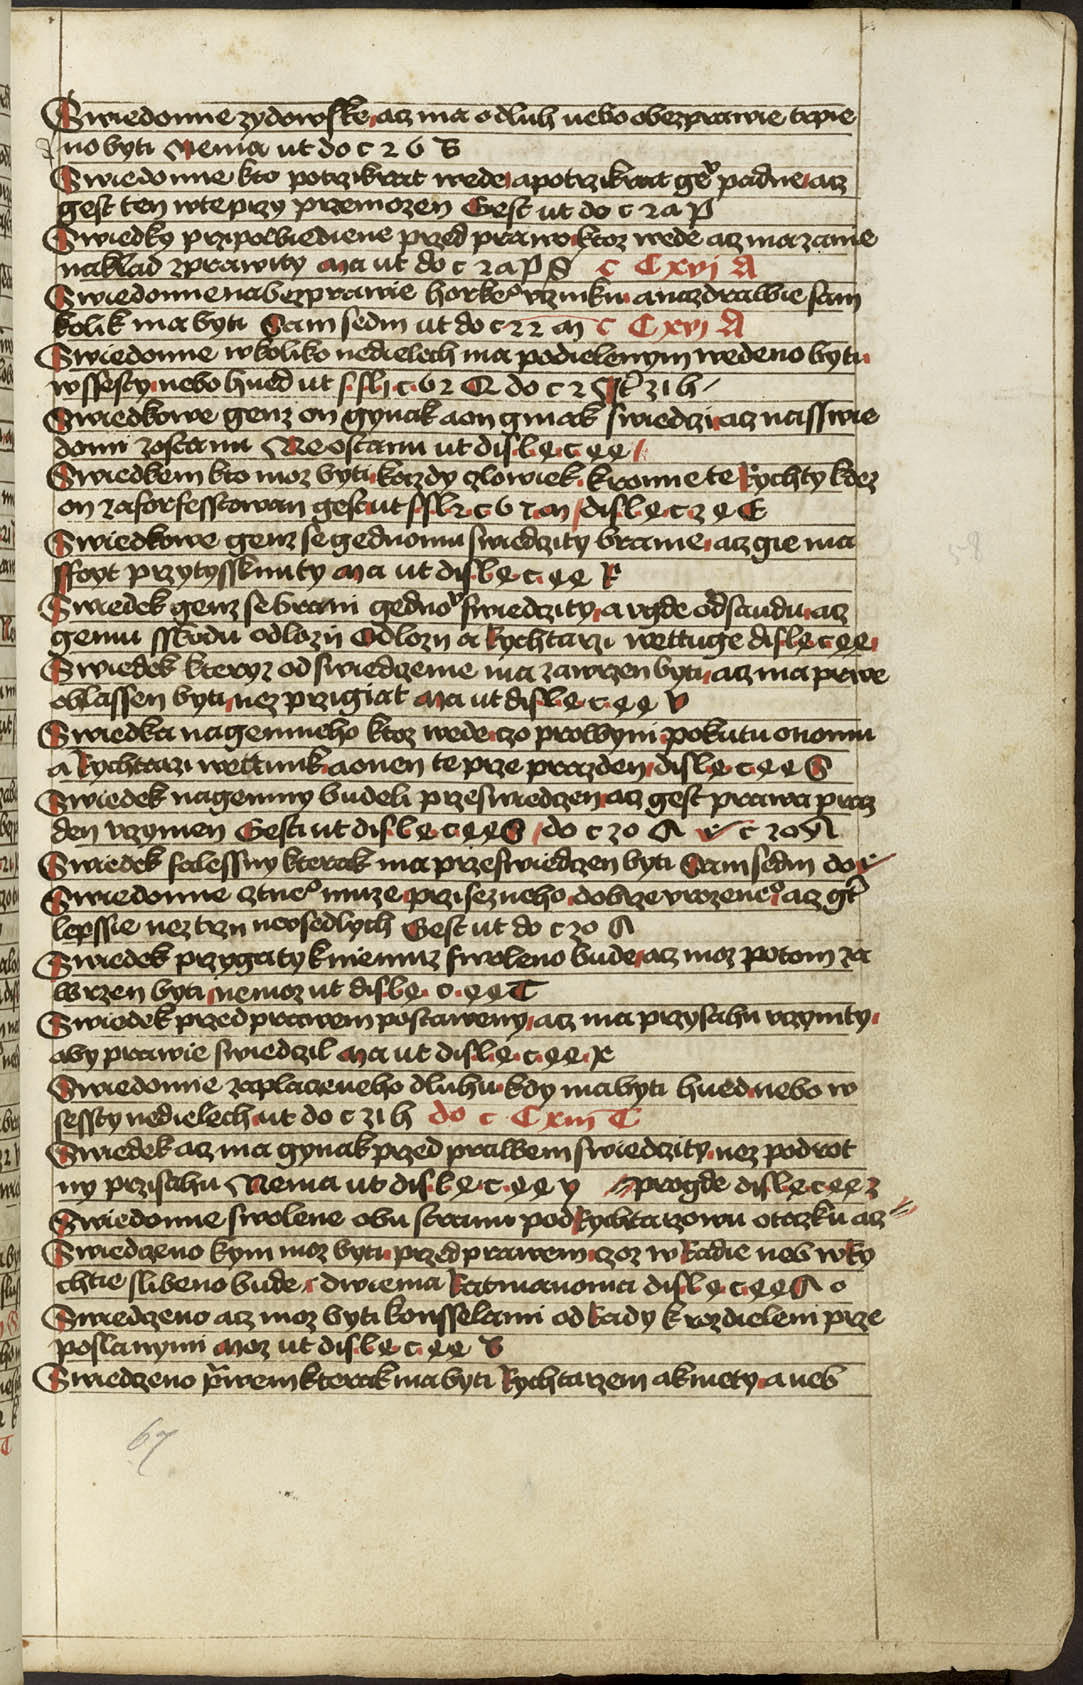 Swiedomie zydowske acz ma o dluh nebo o bezprawie trpie
no byti Nema ut do c 26 B
Swiedomie kto potrzikrat wede a potrzikrat geº padne acz
gest ten w te przy przemozen Gest ut do c 2a P
Swiedky przipowiediene przed prawo ktoz wede acz ma za nie
naklad zprawity Ma ut do c 2a P S c Cxvj A
Swiedomie na bezprawie horkeº vczinku a na zdrawie sam
kolik ma byti Sam sedm ut do c 22 m c Cxvj A
Swiedomie w koliko nedielech ma podielenym wedeno byti
w ssesty nebo hned ut do c 2 31 h
Swiedkowe genz on gynak a on ginak swiedczi acz na sswie
domi zostanu Neostanu ut dis l e c ee
Swiedkem kto moz byti kazdy czlowiek kromie te Rychty kdez
on zaforfesstowan gest ut c 6 m dis l e c z e E
Swiedkowe genz se gednomu swiedczity branie acz gie ma
ffoyt przytyssknuty Ma ut dis l e c ee R
Swiedek genz se brani gednoº swiedczity a vgde od saudu acz
gemu sskodu odlozy Odlozy a Rychtarzi wettuge dis l e c ee
Swiedek kteryz od swiedczenie ma zawrzen byti acz ma prwe
ohlassen byti nez przigiat Ma ut dis l e c ee V
Swiedka nagemneho ktoz wede czo prwbymi pokutu onomu
a Rychtarzi wettunk a onen te prze prazden dis l e c ee S
Swiedek nagemny budeli przeswiedczen acz gest prawa praz
den vczynen Gest ut dis l e c ee S do c 30 A c 30 A
Swiedek falessny kterak ma przeswiedczen byti Sam sedm do
Swiedomie cztneº muze przisezneho dobrze vrozeneº acz gt
lepssie nez trzy neosedlych Gest ut do c 30 A
Swiedek przygaty k niemuz swoleno bude acz moz potom za
wrzen byti nemoz ut dis l e c ee T
Swiedek przed prawem postaweny acz ma przysahu vczynity
aby prawie swiedczil Ma ut dis l e c ee X
Swiedomie zaplaczeneho dluhu kdy ma byti hned nebo w
sessty nedielech ut do c 31 h do c Cxiii C
Swiedek acz ma gynak przed prawem swiedczity nez podrot
ny przisahu Nema ut dis l e c ee y progde dis l e c ee z
Swiedomie swolene obu stranu pod Rychtarzowu otazku acz
Swiedczeno kym moz byti przed prawem czoz w Radie neb w Ry
chtie slibeno bude dwiema Ratmanoma dis l e c ee A o
Swiedczeno acz moz byti konsselami od Rady k rozdieleni prze
poslanymi Moz ut dis l e c ee B
Swiedczeno prwem kterak ma byti Rychtarzem a kmety a neb
67
58